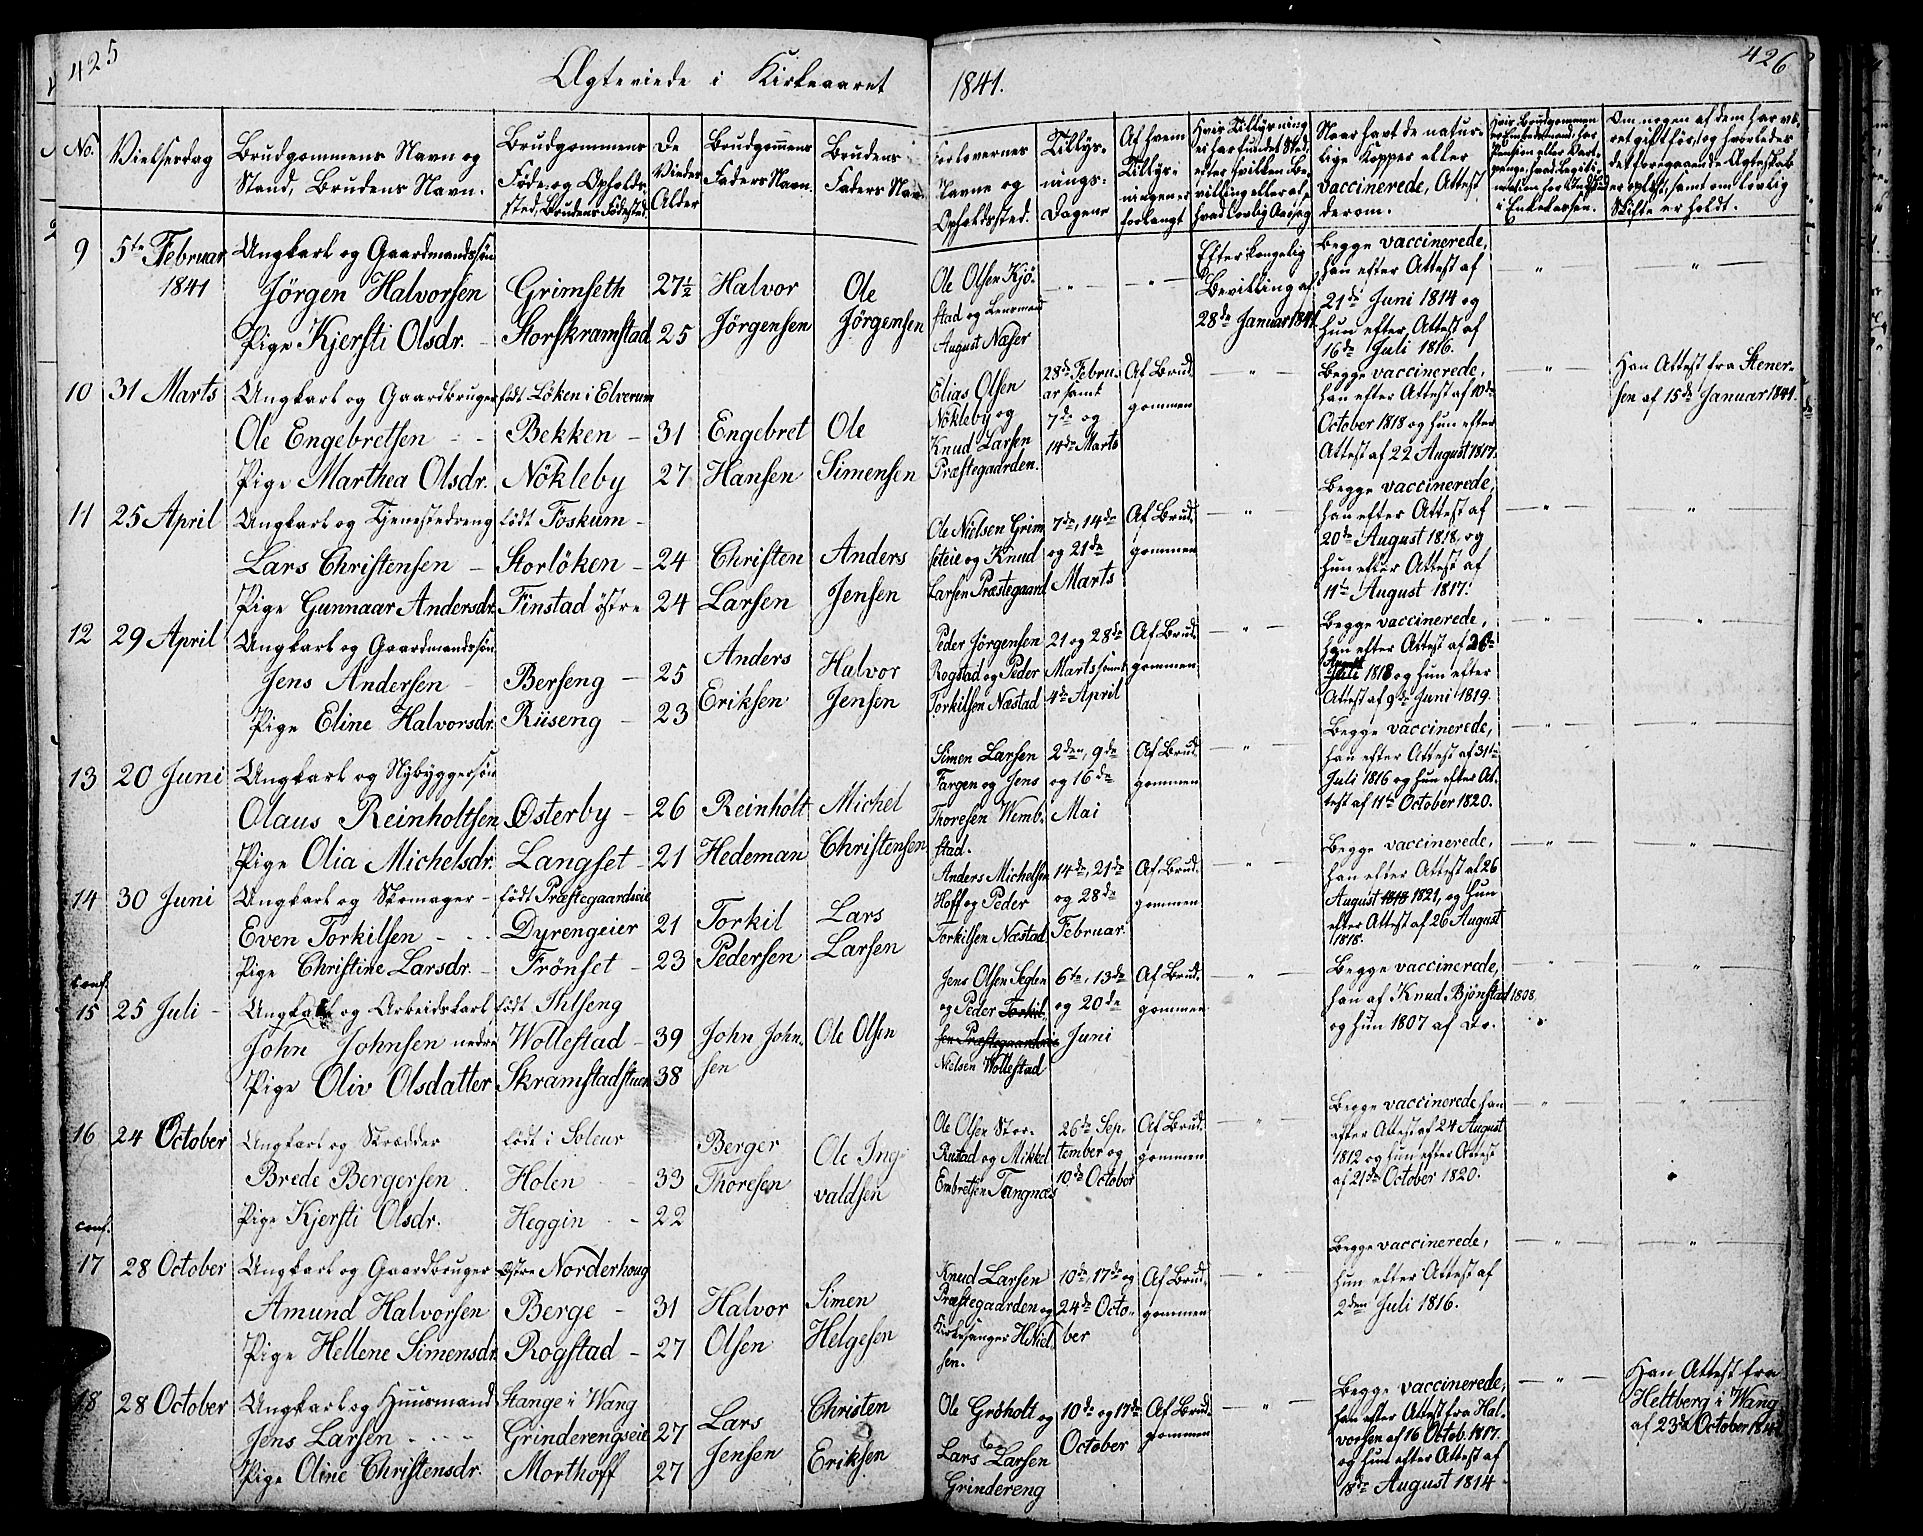 425
426
Ægteviede i Kirkeaaret 1841.
No.
Vielsesdag
Brudgommens Navn og
Stand, Brudens Navn.
Brudgommens
Føde- og Opholds-
sted, Brudens Fødested.
De
Viedes
Alder
Brudgommens
Faders Navn
Brudens
Faders Navn
Forlovernes
Navne og
Opholdssted.
Tillys-
nings-
Dagene
Af hvem
Tillys-
ningen er
forlangt
Hvis Tillysning
ei har fundet Sted,
efter hvilken Be-
villing eller af
hvad lovlig Aarsag
Naar havt de natur-
lige Kopper eller
vaccinerede, Attest
derom.
Om nogen af dem har væ-
ret gift før, og hvorledes
det foregaaende Ægteskab
er opløst, samt om lovlig
Skifte er holdt.
9
5te Februar
1841
Ungkarl og Gaardmandssøn
Jörgen Halvorsen
Pige Kjersti Olsdr.
Grimseth
Storskramstad
27½
25
Halvor
Jörgensen
Ole
Jörgensen
Ole Olsen Kjö-
stad og Lensmand
August Næser
Efter kongelig
Bevilling af
28de Januar 1841
Begge vaccinerede,
han efter Attest af
21de Juni 1814 og
hun efter Attest af
16de Juli 1816.
10
31 Marts
Ungkarl og Gaardbruger
Ole Engebretsen
Pige Marthea Olsdr.
født Löken i Elverum
Bekken
Nökleby
31
27
Engebret
Hansen
Ole
Simensen
Elias Olsen
Nökleby og
Knud Larsen
Præstegaarden.
28de Febru-
ar samt
7de og
14de Marts
Af Brud-
gommen
Begge vaccinerede,
han efter Attest af 10de
October 1818 og hun efter
Attest af 22 August 1817.
Han Attest fra Stener-
sen af 15de Januar 1841.
11
25 April
Ungkarl og Tjenestedreng
Lars Christensen
Pige Gunnaar Andersdr.
født Toskum
Storlöken
Finstad østre
24
24
Christen
Larsen
Anders
Jensen
Ole Nielsen Grim-
seteie og Knud
Larsen Præstegaard
7de, 14de
og 21de
Marts
Af Brud-
gommen
Begge vaccinerede,
han efter Attest af
20de August 1818, og
hun efter Attest af
11te August 1817.
12
29 April
Ungkarl og Gaardmandssøn
Jens Andersen
Pige Eline Halvorsdr.
Berseng
Riiseng
25
23
Anders
Eriksen
Halvor
Jensen
Peder Jörgensen
Rogstad og Peder
Torkilsen Næstad
21 og 28de
Marts samt
4de April
Af Brud-
gommen
Begge vaccinerede,
han efter Attest af 26de
Juli 1818 og hun efter
Attest af 9de Juni 1819.
13
20 Juni
Ungkarl og Nybyggersøn
Olaus Reinholtsen
Pige Olia Michelsdr.
Østerby
Langset
26
21
Reinholt
Hedeman
Michel
Christensen
Simen Larsen
Fargen og Jens
Thoresen Wemb-
stad.
2den, 9de
og 16de
Mai
Af Brud-
gommen
Begge vaccinerede,
han efter Attest af 31te
Juli 1816 og hun efter At-
test af 11te October 1820.
14
30 Juni
Ungkarl og Skomager
Even Torkilsen
Pige Christine Larsdr.
født Præstegaardseie
Dyrengeier
Frönset
21
23
Torkil
Pedersen
Lars
Larsen
Anders Michelsen
Hoff og Peder
Torkilsen Næstad
14de, 21de
og 28de
Februar.
Af Brud-
gommen
Begge vaccinerede,
han efter Attest af 26
August 1818 1821, og hun
efter Attest af 26 August
1818.
conf.
15
25 Juli
Ungkarl og Arbeidskarl
John Johnsen nedre
Pige Oliv Olsdatter
født Thilseng
Wollestad
Skramstadstuen
39
38
John John-
sen
Ole Olsen
Jens Olsen Seglen
og Peder Torkil-
sen Præstegaardseie
Nielsen Wollestad
6te, 13de
og 20de
Juni
Af Brud-
gommen
Begge vaccinerede,
han af Knud Bjönstad 1808,
og hun 1807 af Do.
16
24 October
Ungkarl og Skrædder
Brede Bergersen
Pige Kjersti Olsdr.
født i Soleur
Holen
Heggin
33
22
Berger
Thoresen
Ole Ing-
valdsen
Ole Olsen Stor-
Rustad og Mikkel
Embretsen Tangnæs
26de Sep-
tember og
10de October
Af Brud-
gommen
Begge vaccinerede han
efter Attest af 24 August
1812 og hun efter Attest
af 21de October 1820.
conf.
17
28 October
Ungkarl og Gaardbruger
Amund Halvorsen
Pige Hellene Simensdr.
Østre Norderhoug
Berge
Rogstad
31
27
Halvor
Olsen
Simen
Helgesen
Knud Larsen
Præstegaarden og
Kirkesanger
10de, 17de og
24de Octo-
ber
Af Brud-
gommen
Begge vaccinerede,
hun efter Attest af
2den Juli 1816.
18
28 October
Ungkarl og Huusmand
Jens Larsen
Pige Oline Christensdr.
Stange i Wang
Grinderengseie
Morthoff
27
27
Lars
Jensen
Christen
Eriksen
Ole Gröholt og
Lars Larsen
Grindereng
10de og 17de
October
Af Brud-
gommen
Begge vaccinerede,
han efter Attest fra Hal-
vorsen af 16 Octob. 1817.
og hun efter Attest af
18de August 1814
Han Attest fra
Heltberg i Wang
af 23de October 1841